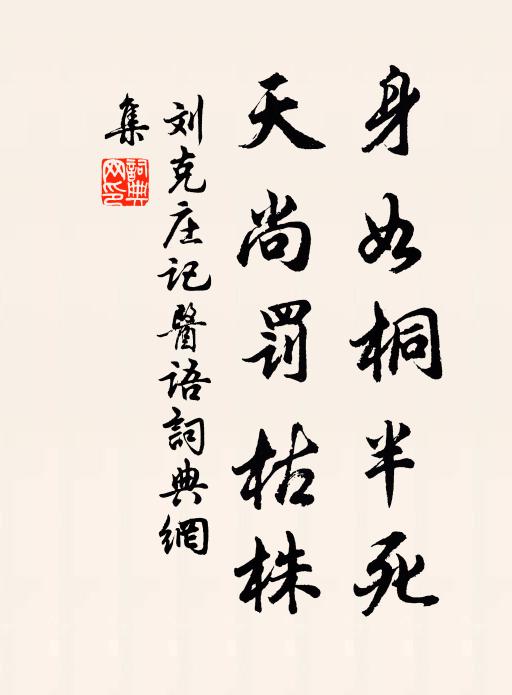 身如桐半死
天尚罚枯株
刘克庄记醫语詞典網
集
詞典網印